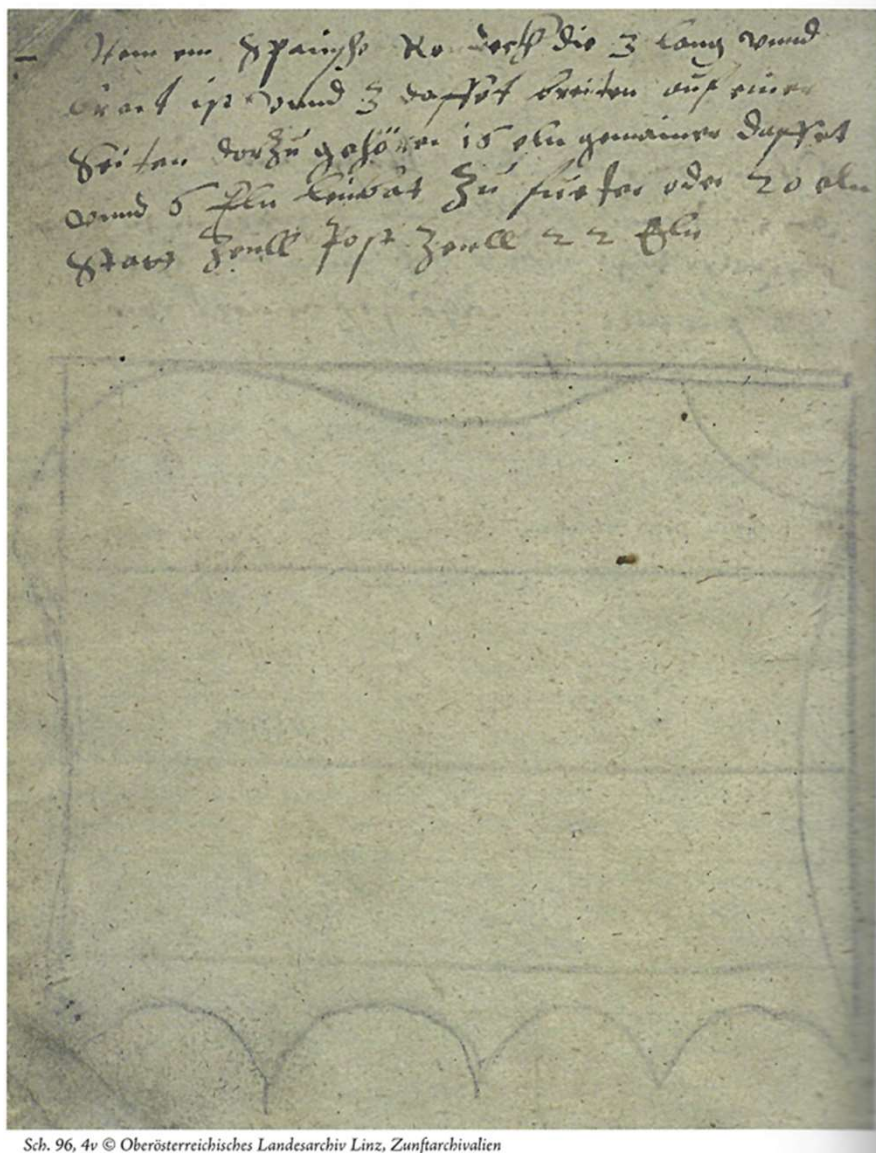 Item ein Spanische Ro deckh die 3 lang vnnd
brait ist vnnd 3 daffet breiten auf einer
Seiten dorzu gehören 15 eln gemainer daffet
vnnd 6 Eln leinbat Zu fueter oder 20 eln
Zenll Post Zenll 22 Eln
Sch. 96, 4v © Oberösterreichisches Landesarchiv Linz, Zunftarchivalien